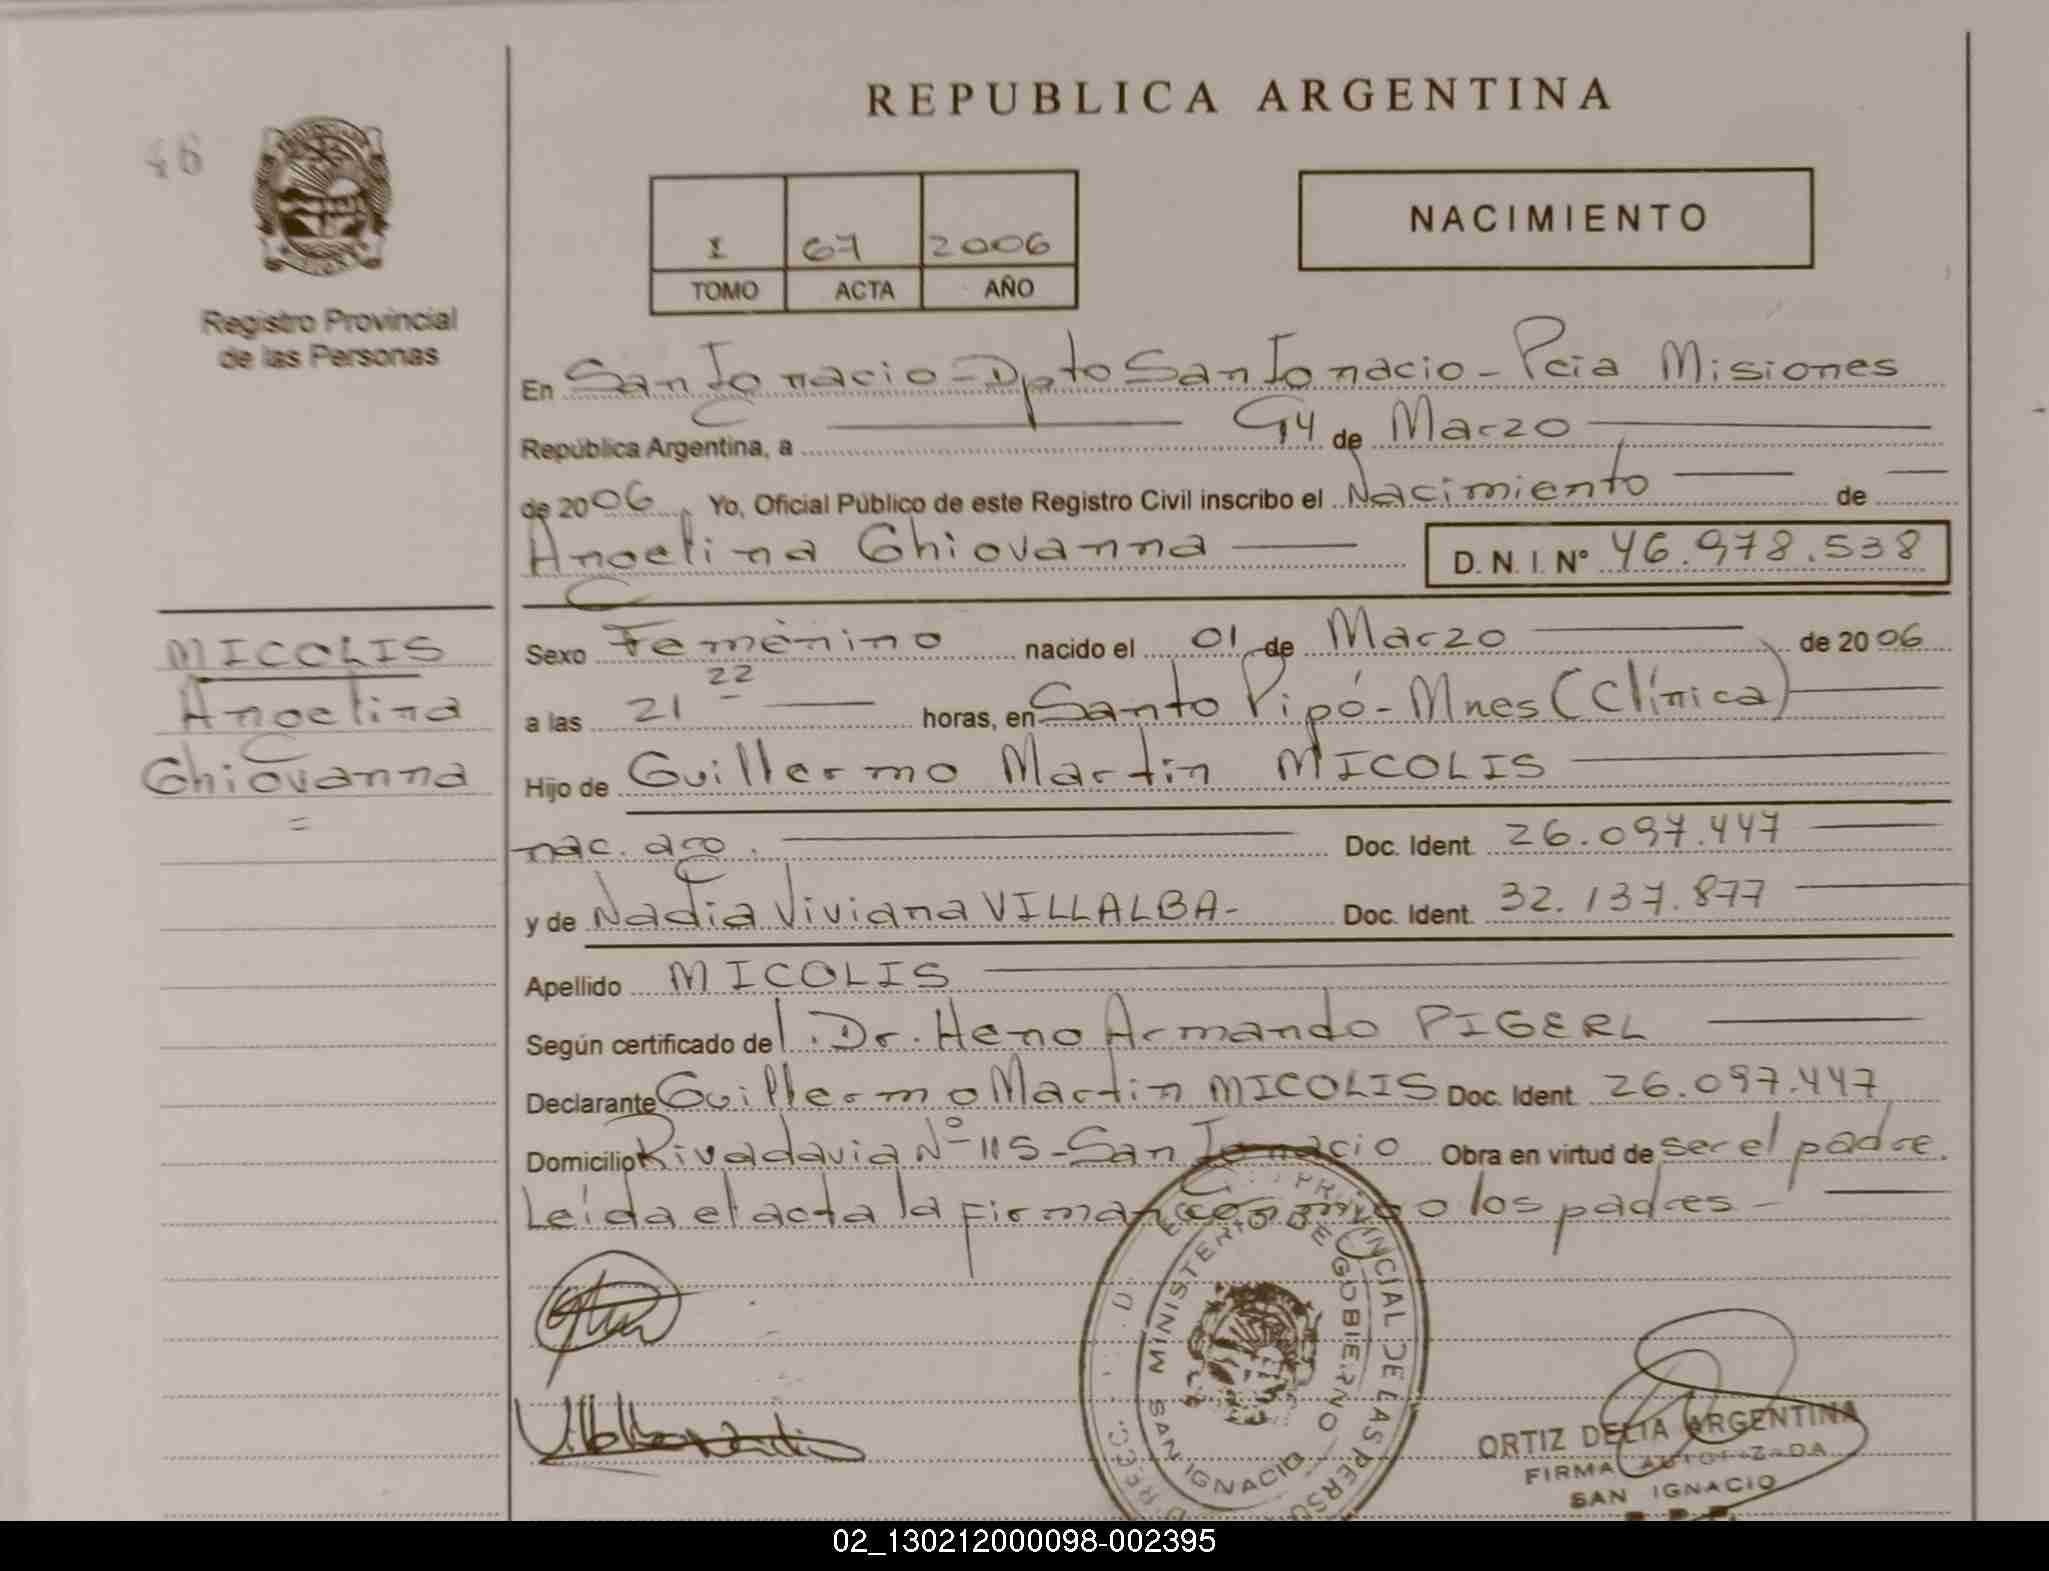 REPUBLICA ARGENTINA
46
Registro Provincial
de las Personas
I 67 2006
TOMO ACTA AÑO
NACIMIENTO
En San Ignacio - Dpto San Ignacio - Pcia Misiones
República Argentina, a 14 de Marzo
de 2006 Yo, Oficial Público de este Registro Civil inscribo el Nacimiento de
Angelina Ghiovanna D. N. I. Nº 46.978.538
MICOLIS
Angelina
Ghiovanna
=
Sexo Femenino nacido el 01 de Marzo de 2006
a las 21 22 horas, en Santo Pipó - Mnes (Clínica)
Hijo de Guillermo Martin MICOLIS
nac. arg. Doc. Ident. 26.097.447
y de Nadia Viviana VILLALBA - Doc. Ident. 32.137.877
Apellido MICOLIS
Según certificado del . Dr. Heno Armando PIGERL
Declarante Guillermo Martin MICOLIS Doc. Ident. 26.097.447
Domicilio Rivadavia Nº 115 - San Ignacio Obra en virtud de ser el padre.
Leída el acta la firman conmigo los padres -
PROVINCIAL DE LAS PERSO
MINISTERIO DE GOBIERNO
SAN IGNACIO
ORTIZ DELIA ARGENTINA
FIRMA AUTORIZADA
SAN IGNACIO
02_130212000098-002395